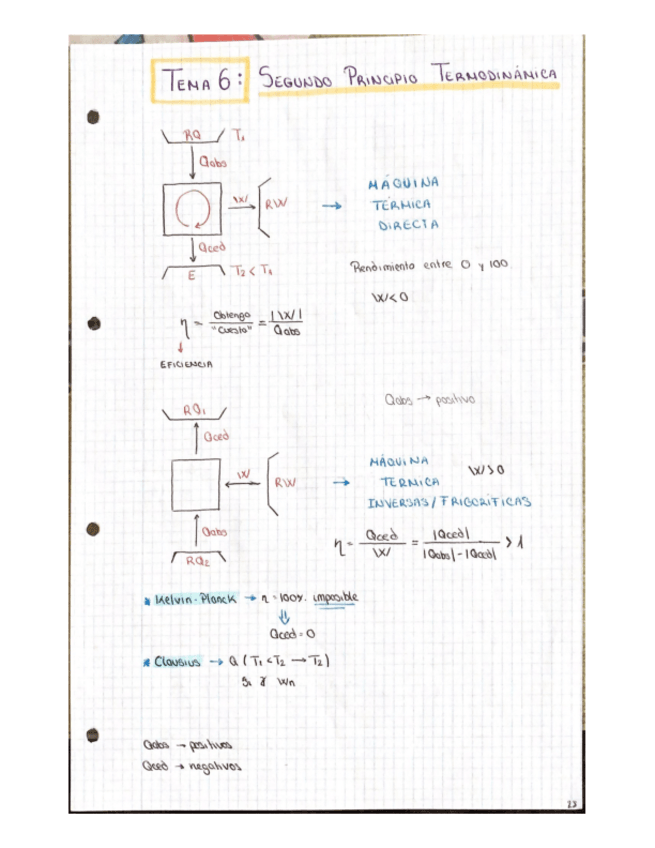 TEMA 6: SEGUNDO PRINCIPIO TERMODINÁMICA
RQ T₁
Qabs
|W| RW → MÁQUINA
TÉRMICA
DIRECTA
Qced
E T₂ < T₁
Rendimiento entre 0 y 100
W<0
η = Obtengo / "Cuesta" = |W| / Qabs
↓
EFICIENCIA
Qabs → positivo
RQ₁
Qced
W RW → MÁQUINA W>0
TERMICA
INVERSAS/FRIGORÍFICAS
Qabs
RQ₂
η = Qced / W = |Qced| / |Qabs|-|Qced| > 1
* Kelvin-Planck → η = 100%. imposible
⇓
Qced = 0
* Clausius → Q (T₁ < T₂ → T₂)
Qabs → positivos
Qced → negativos
23